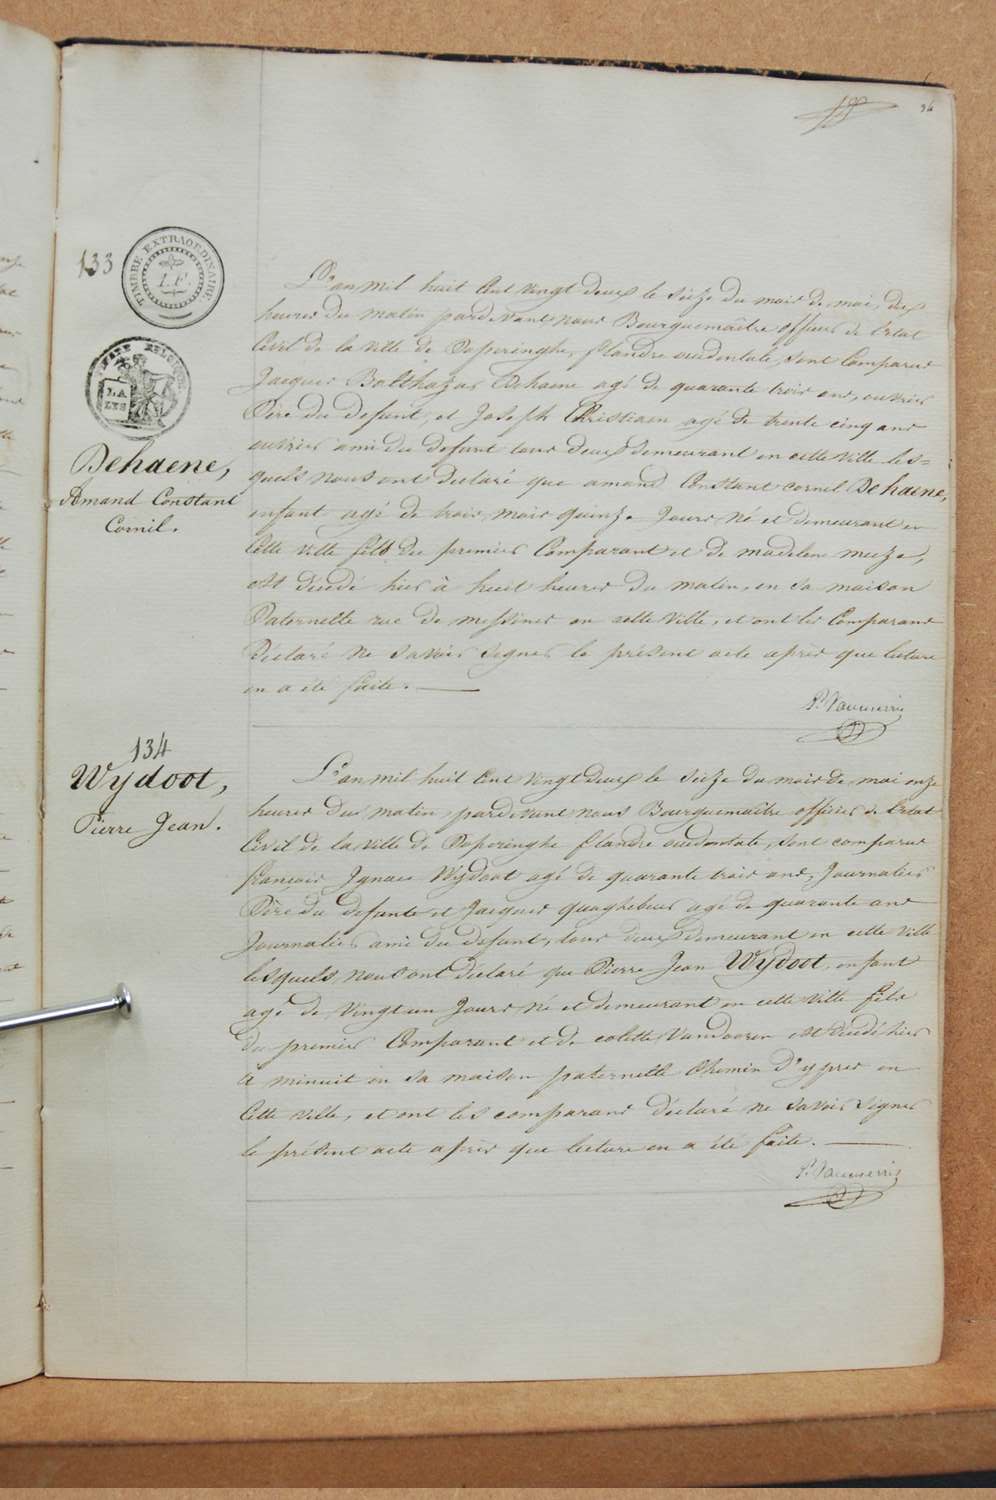 34
133
TIMBRE EXTRAORDINAIRE
LA
LYS
Dehaene,
Amand Constant
Cornil.
L'an mil huit Cent vingt deux le seize du mois de mai, dix
heures du matin pardevant nous Bourguemaître officier de l'etat
Civil de la ville de Poperinghe, flandre occidentale, sont Comparus
Jacques Balthazar Dehaene agé de quarante trois ans, ouvrier
Père du defunt, et Joseph Christiaen agé de trente cinq ans
ouvrier ami du defunt tous deux demeurant en cette ville les=
quels nous ont declaré que amand Constant cornil Dehaene,
enfant agé de trois mois quinze jours né et demeurant en
Cette ville fils du premier Comparant et de madelene meeze,
est décédé hier à huit heures du matin, en sa maison
Paternelle rue de messines en cette ville, et ont les Comparans
Déclaré ne savoir signer le présent acte après que lecture
en a été faite.
134
Wydoot,
Pierre Jean.
L'an mil huit Cent vingt deux le seize du mois de mai onze
heures du matin, pardevant nous Bourguemaître officier de l'etat
Civil de la ville de Poperinghe flandre occidentale, sont comparus
françois Ignace Wydoot agé de quarante trois ans, Journalier
Père du defunt et Jacques quaghebeur agé de quarante ans
Journalier ami du défunt, tous deux demeurant en cette ville
lesquels, nous ont déclaré que Pierre Jean Wydoot, enfant
agé de vingt un Jours né et demeurant en cette ville fils
du premier Comparant et de colette Vandooren est décédé hier
a minuit en sa maison paternelle Chemin d'ypres en
Cette ville, et ont les comparans déclaré ne savoir signer
le présent acte après que lecture en a été faite.